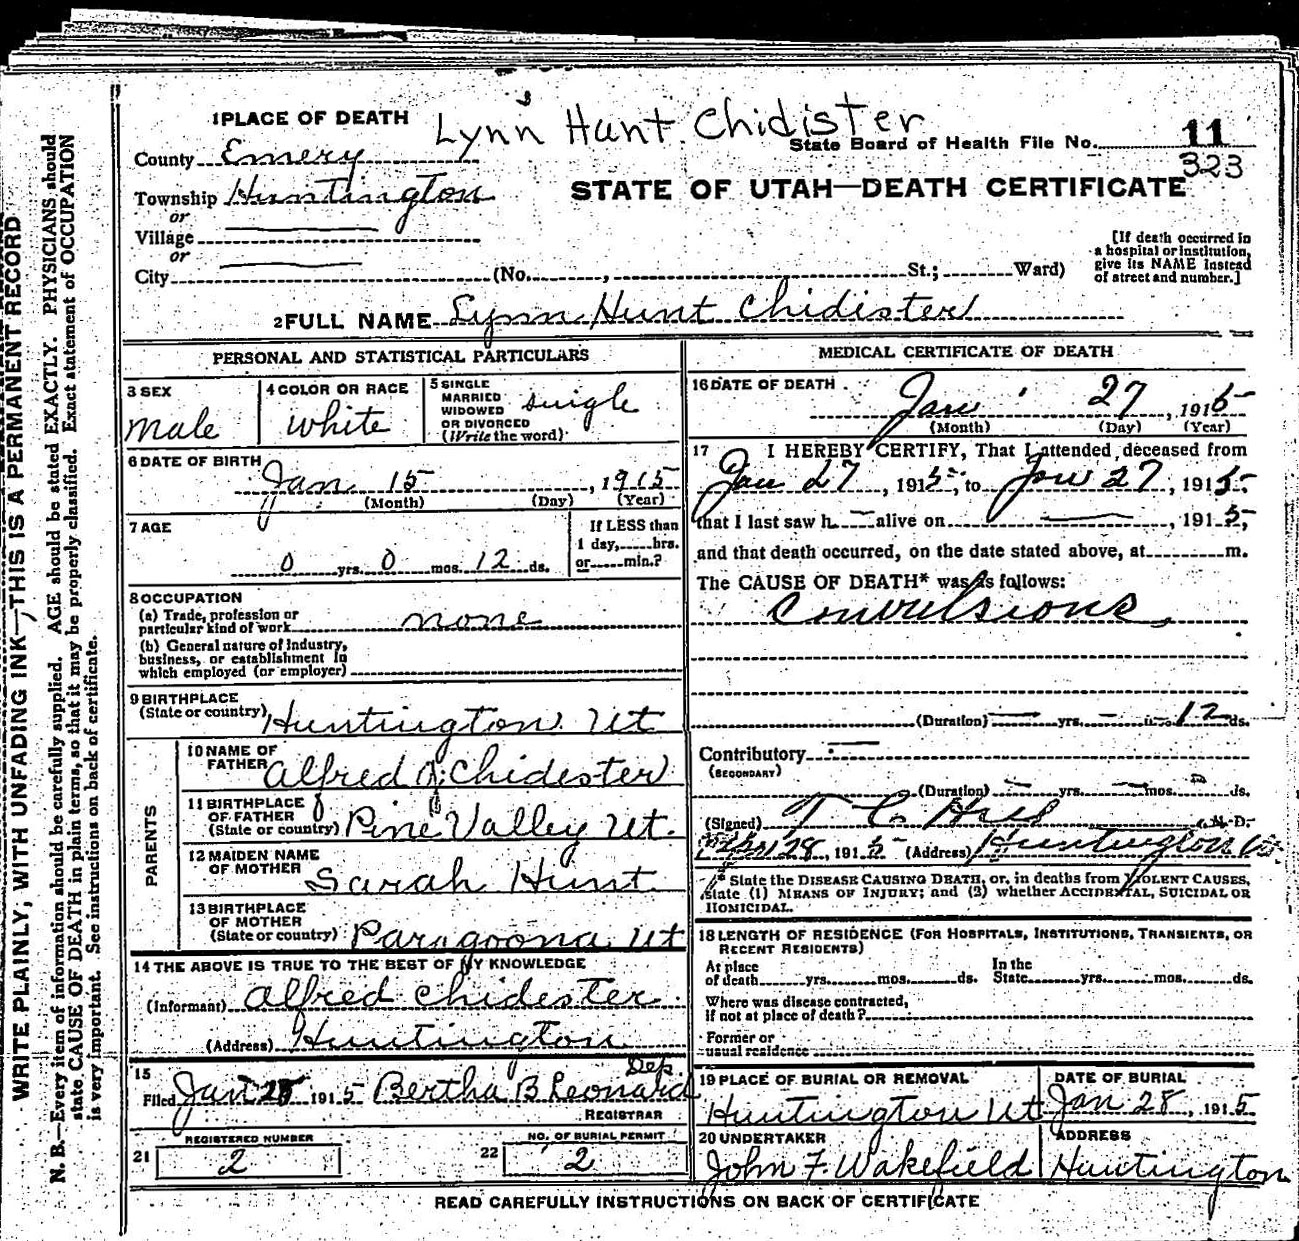 1 PLACE OF DEATH Lynn Hunt Chidister
State Board of Health File No. 11
323
County Emery
Township Huntington
or
Village
or
City (No. , St.; Ward)
STATE OF UTAH—DEATH CERTIFICATE
[If death occurred in
a hospital or institution,
give its NAME instead
of street and number.]
2 FULL NAME Lynn Hunt Chidister
PERSONAL AND STATISTICAL PARTICULARS
3 SEX
Male
4 COLOR OR RACE
White
5 SINGLE
MARRIED
WIDOWED
OR DIVORCED
(Write the word)
single
6 DATE OF BIRTH
Jan 15, 1915
(Month) (Day) (Year)
7 AGE
0 yrs. 0 mos. 12 ds.
If LESS than
1 day, hrs.
or min.?
8 OCCUPATION
(a) Trade, profession or
particular kind of work none
(b) General nature of Industry,
business, or establishment in
which employed (or employer)
9 BIRTHPLACE
(State or country) Huntington Ut
PARENTS
10 NAME OF
FATHER Alfred J. Chidester
11 BIRTHPLACE
OF FATHER
(State or country) Pine Valley Ut.
12 MAIDEN NAME
OF MOTHER
Sarah Hunt
13 BIRTHPLACE
OF MOTHER
(State or country) Paragoona Ut
14 THE ABOVE IS TRUE TO THE BEST OF MY KNOWLEDGE
(Informant) Alfred Chidester
(Address) Huntington
15
Filed Jan 28 1915 Bertha B Leonard Dep.
REGISTRAR
REGISTERED NUMBER
21 2
NO. OF BURIAL PERMIT
22 2
MEDICAL CERTIFICATE OF DEATH
16 DATE OF DEATH
Jan 27, 1915
(Month) (Day) (Year)
17 I HEREBY CERTIFY, That I attended deceased from
Jan 27, 1915, to Jan 27, 1915,
that I last saw h— alive on —, 1915,
and that death occurred, on the date stated above, at m.
The CAUSE OF DEATH* was as follows:
Convulsions
(Duration) — yrs. — 12 ds.
Contributory
(SECONDARY)
(Duration) — yrs. — mos. ds.
(Signed) T C Hill M.D.
28, 1915 (Address) Huntington
* State the DISEASE CAUSING DEATH, or, in deaths from VIOLENT CAUSES,
state (1) MEANS OF INJURY; and (2) whether ACCIDENTAL, SUICIDAL OR
HOMICIDAL.
18 LENGTH OF RESIDENCE (FOR HOSPITALS, INSTITUTIONS, TRANSIENTS, OR
RECENT RESIDENTS)
At place
of death yrs. mos. ds.
In the
State yrs. mos. ds.
Where was disease contracted,
if not at place of death?
Former or
usual residence
19 PLACE OF BURIAL OR REMOVAL
Huntington Ut
DATE OF BURIAL
Jan 28, 1915
20 UNDERTAKER
John F Wakefield
ADDRESS
Huntington
READ CAREFULLY INSTRUCTIONS ON BACK OF CERTIFICATE
WRITE PLAINLY, WITH UNFADING INK—THIS IS A PERMANENT RECORD
N. B.—Every item of information should be carefully supplied. AGE should be stated EXACTLY. PHYSICIANS should
state CAUSE OF DEATH in plain terms, so that it may be properly classified. Exact statement of OCCUPATION
is very important. See instructions on back of certificate.